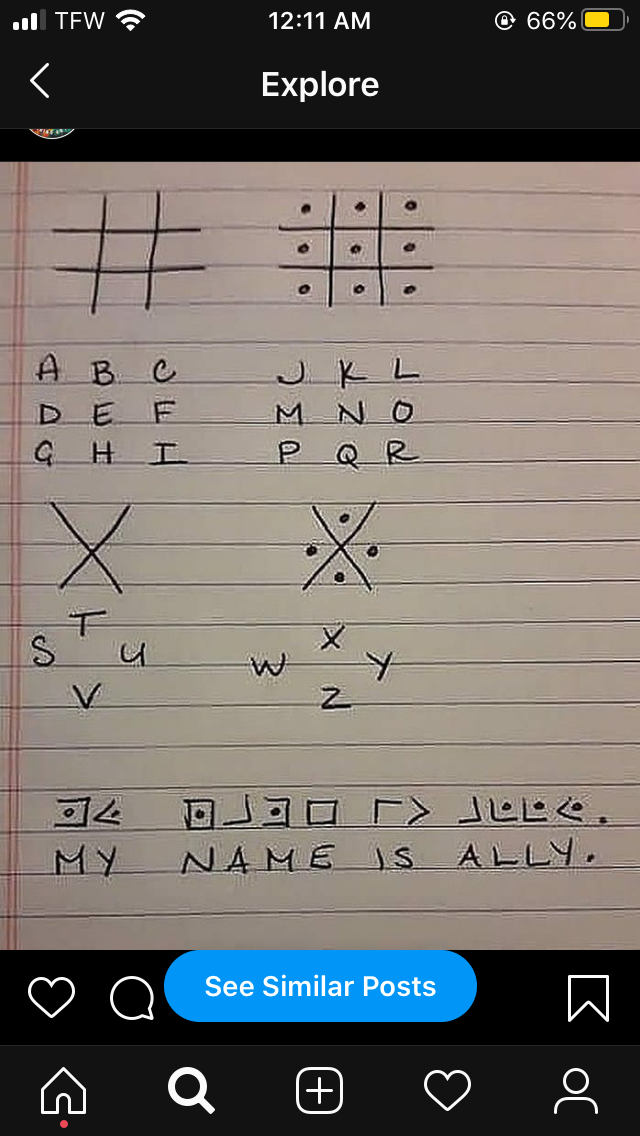 TFW 12:11 AM 66%
Explore
A B C J K L
D E F M N O
G H I P Q R
T X
S U W Y
V Z
MY NAME IS ALLY.
See Similar Posts